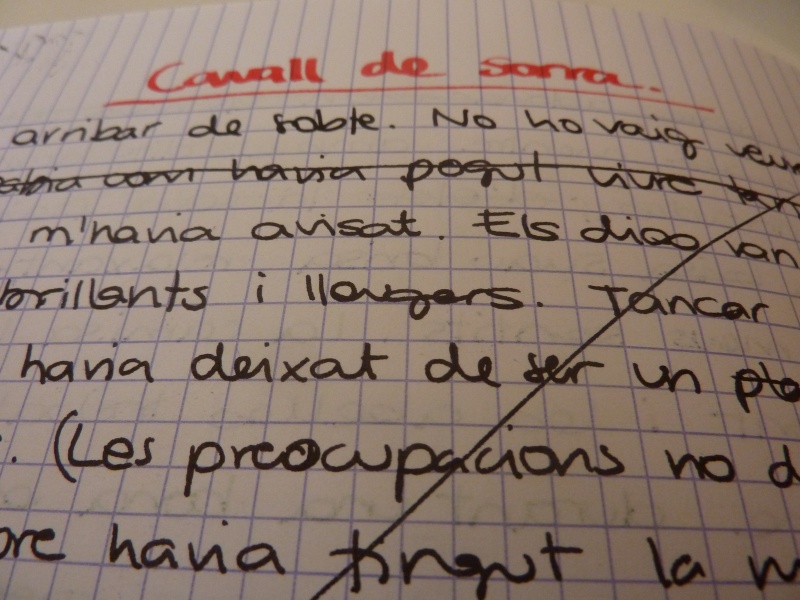 Cavall de sorra.
arribar de sobte. No ho vaig
havia pogut viure
m'havia avisat. Els dies van
brillants i llaugers. Tancar
havia deixat de ser un
(Les preocupacions no
havia tingut la